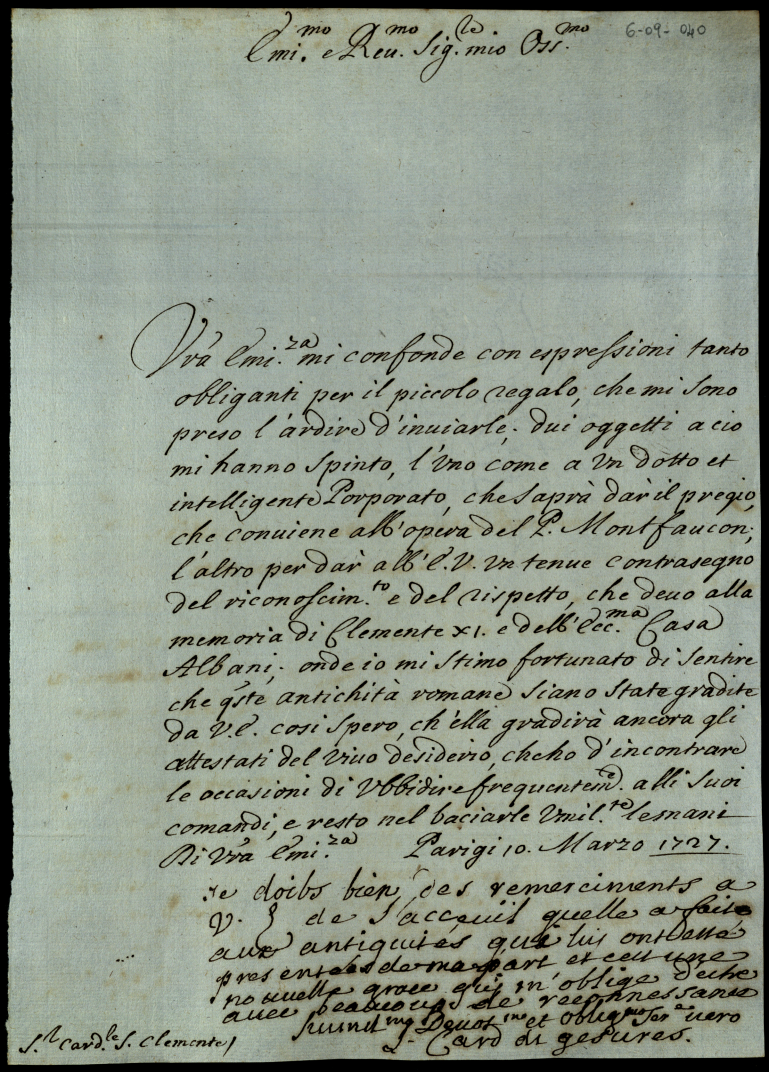 6-09-040
Emi.mo e Reu.mo Sig.re mio Oss.mo
Vrã Emi.za mi confonde con espressioni tanto
obliganti per il piccolo regalo, che mi sono
preso l'ardire d'inuiarle; dui oggetti a cio
mi hanno spinto, l'vno come a vn dotto et
intelligente Porporato, che saprà dar il pregio,
che conuiene all'opera del P. Montfaucon;
l'altro per dar all'E.V. vn tenue contrasegno
del riconoscim.to e del rispetto, che deuo alla
memoria di Clemente XI. e dell'Ecc.ma Casa
Albani; onde io mi stimo fortunato di sentire
che qste antichità romane siano state gradite
da V.E. cosi spero, ch'ella gradirà ancora gli
attestati del viuo desiderio, che ho d'incontrare
le occasioni di vbbidire frequentem.e alli suoi
comandi, e resto nel baciarle vmil.te le mani
Di Vrã Emi.za Parigi 10. Marzo 1727.
Je doibs bien des remerciments a
V. E de l'accueuil quelle a faite
aux antiquités qui luis ont etté
presentées de ma part et cett une
nouuelle grace qui m'oblige d'estre
auec beaucoup de reconnessance
Deuot.mo et oblig.mo ser.e uero
Card di gesures.
S.r Card.le S. Clemente